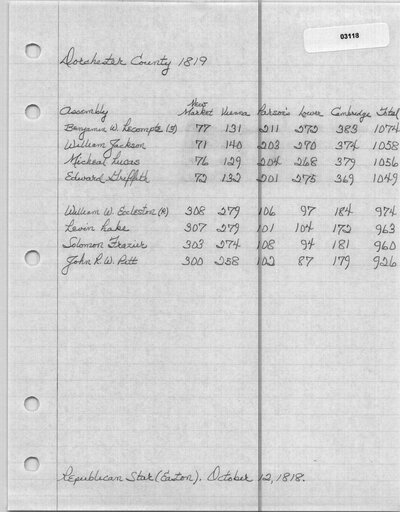 03118
Dorchester County 1819
Assembly New Market Vienna Parson's Lower Cambridge Total
Benjamin W. Lecompte (F) 77 131 211 272 383 1074
William Jackson 71 140 203 270 374 1058
Micheal Lucas 76 129 204 268 379 1056
Edward Griffith 72 132 201 275 369 1049
William W. Eccleston (R) 308 279 106 97 184 974
Levin Lake 307 279 101 104 172 963
Solomon Frazier 303 274 108 94 181 960
John R. W. Pitt 300 258 102 87 179 926
Republican Star (Easton). October 12, 1818.